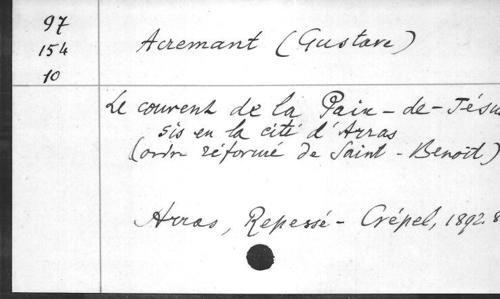 97
154
10
Acremant (Gustave)
Le couvent de la Paix-de-Jésus
sis en la cité d'Arras
(ordre réformé de Saint-Benoît)
Arras, Repessé-Crépel, 1892. 8